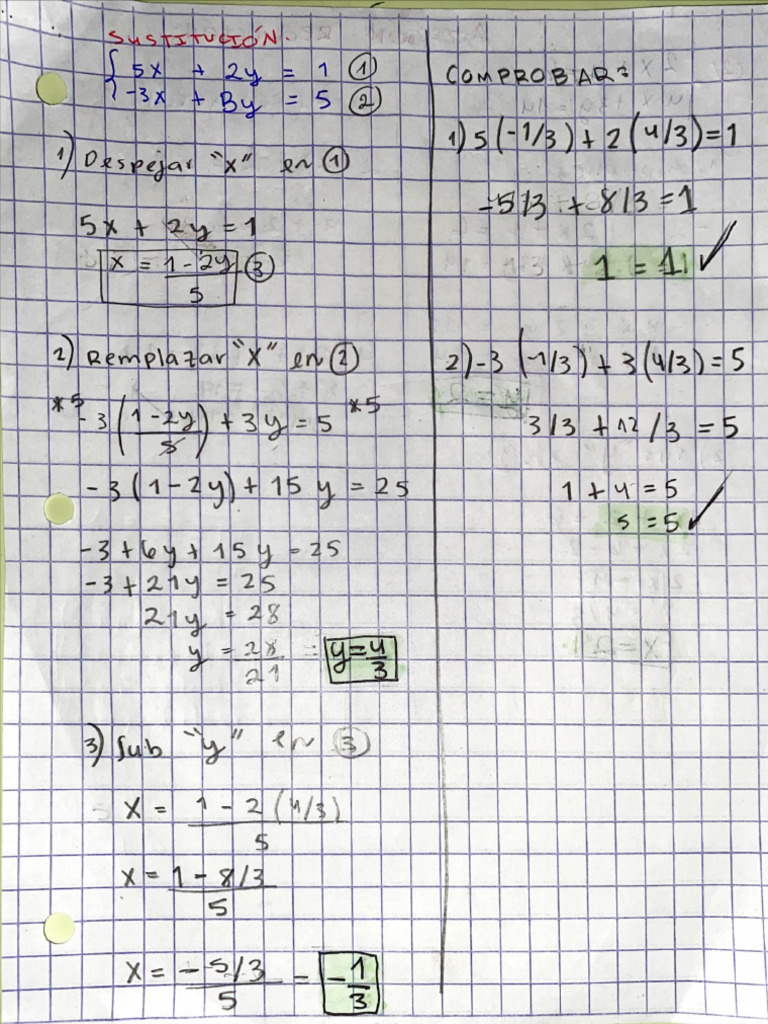 SUSTITUCIÓN.
5x + 2y = 1 ①
-3x + 3y = 5 ②
1) Despejar "x" en ①
5x + 2y = 1
x = 1 - 2y ③
5
2) Remplazar "x" en ②
*5 -3(1-2y) + 3y = 5 *5
5
-3(1-2y) + 15y = 25
-3 + 6y + 15y = 25
-3 + 21y = 25
21y = 28
y = 28 = y = 4
21 3
3) Sub "y" en ③
x = 1 - 2(4/3)
5
x = 1 - 8/3
5
x = -5/3 = -1
5 3
COMPROBAR:
1) 5(-1/3) + 2(4/3) = 1
-5/3 + 8/3 = 1
1 = 1 ✓
2) -3(-1/3) + 3(4/3) = 5
3/3 + 12/3 = 5
1 + 4 = 5
5 = 5 ✓